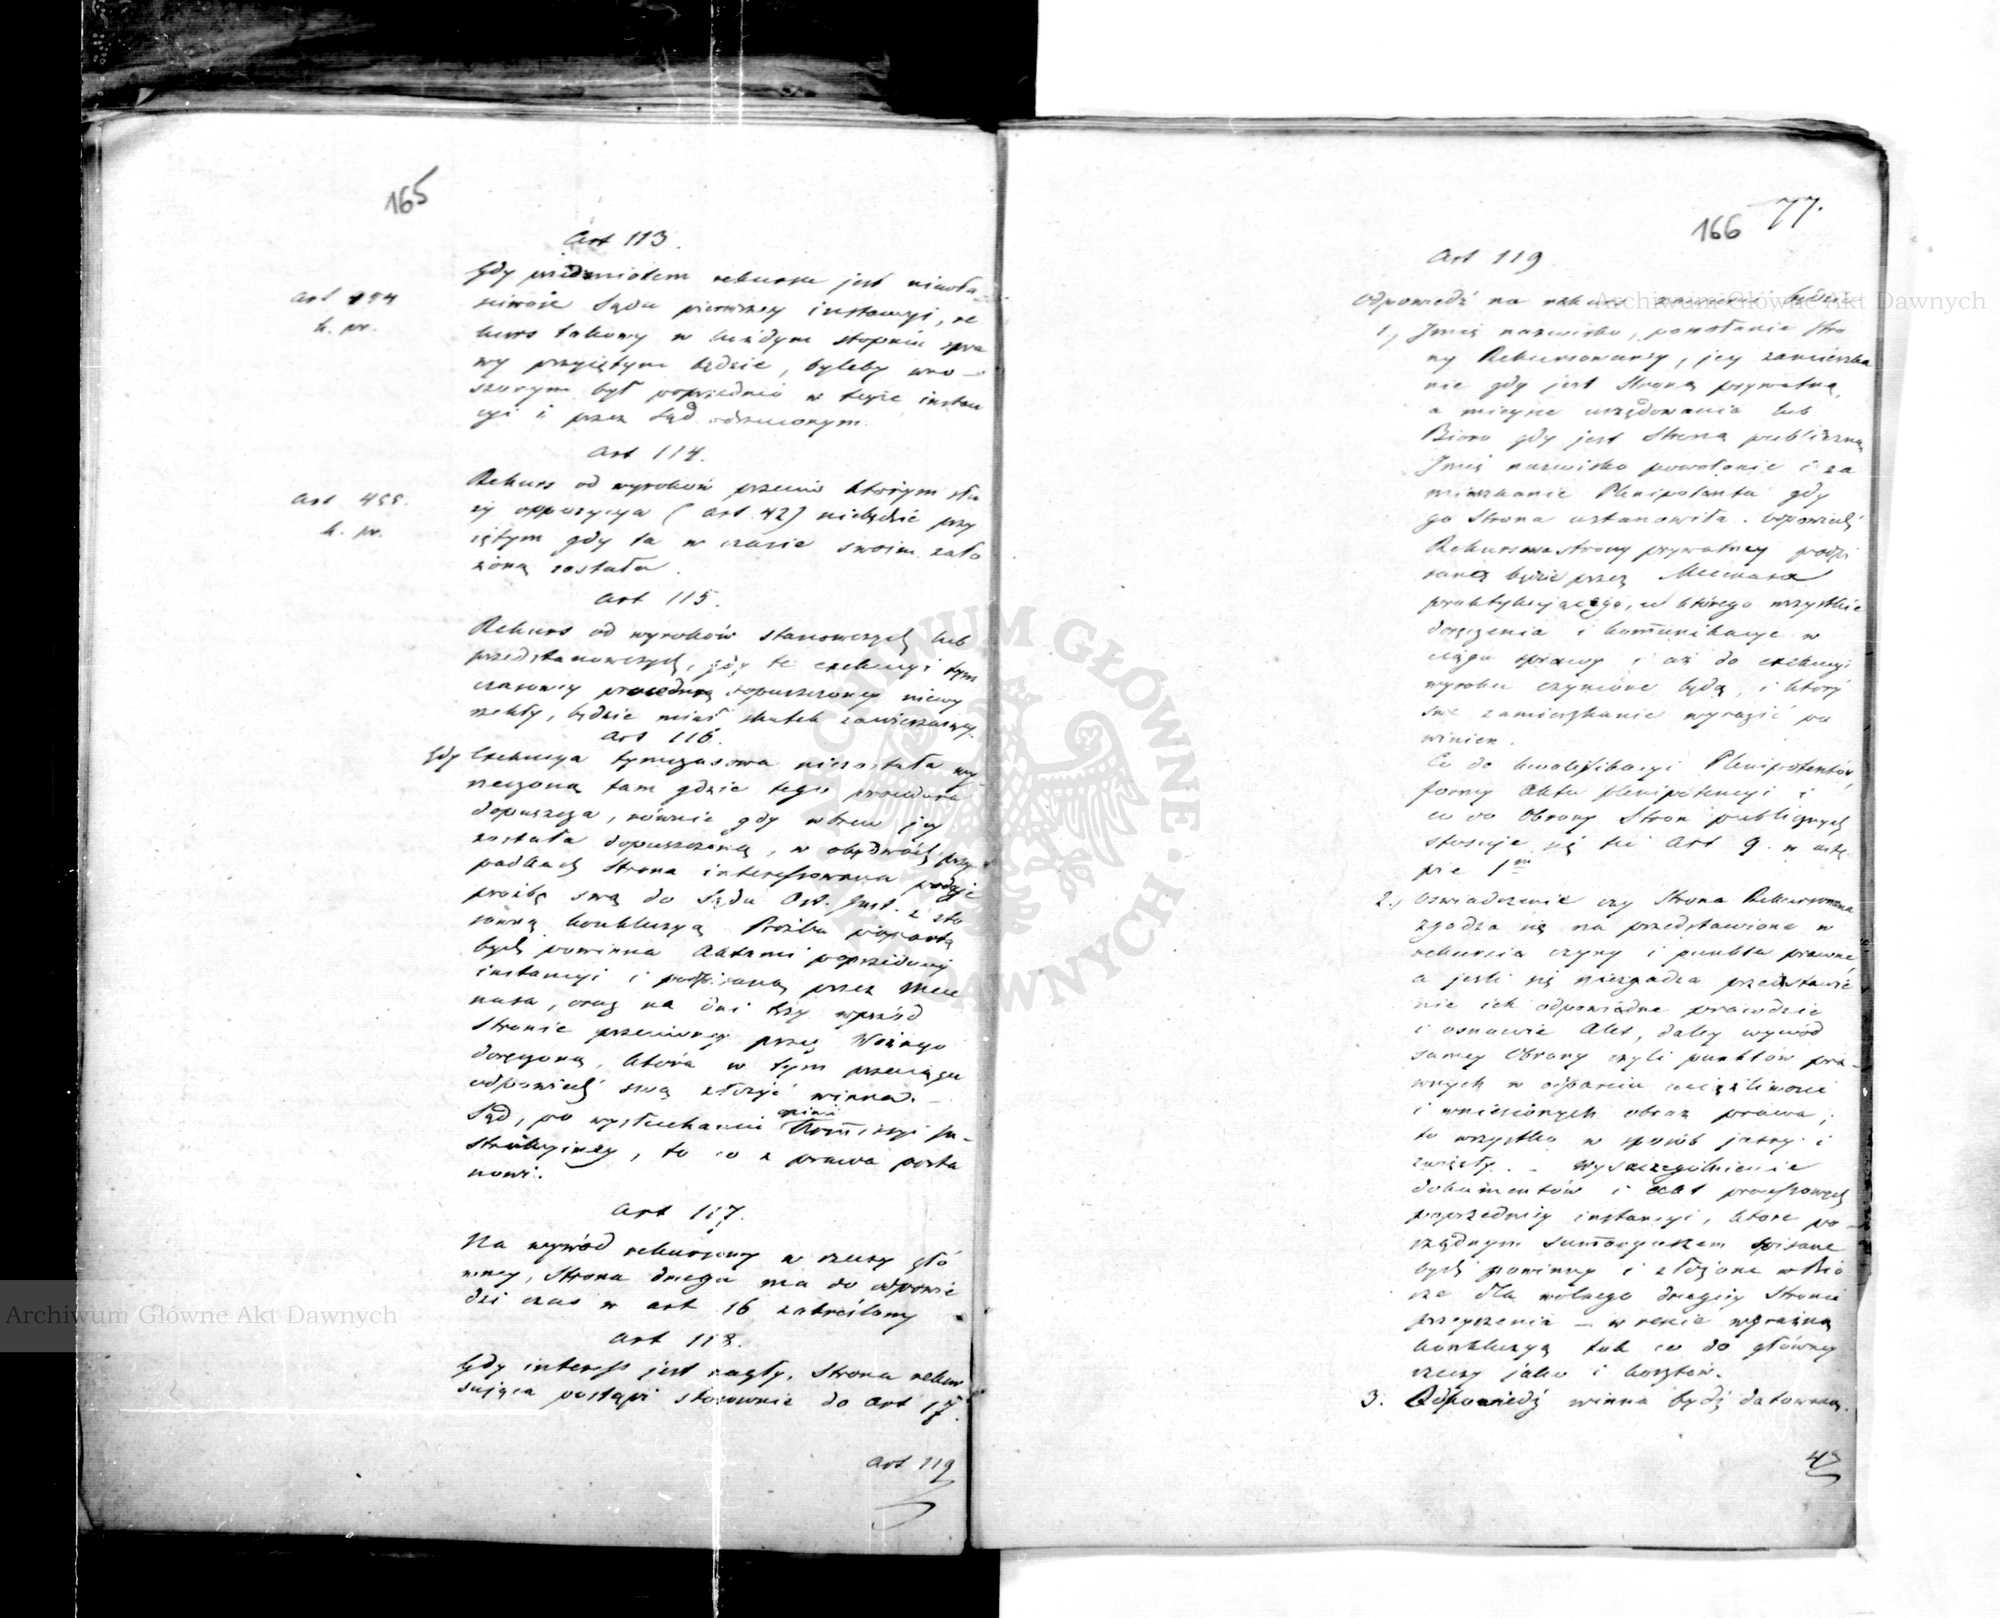 165
Art 113.
Art 454
k. pr.
Gdy przedmiotem rekursu jest niewła-
ściwość Sądu pierwszey instancyi, re
kurs takowy w każdym stopniu spra
wy przyiętym będzie, byleby wno-
szonym był poprzednio w teyże instan
cyi i przez Sąd odrzuconym.
Art 114.
Art 455.
k. pr.
Rekurs od wyroków przeciw którym słu
ży oppozycya (art. 42) niebędzie przy
iętym gdy ta w czasie swoim zało
żoną została.
Art 115.
Rekurs od wyroków stanowczych lub
przedstanowczych, gdy te exekucyi tym
czasowey procedurą dopuszczoney niewy
rzekły, będzie miał skutek zawieszaiący.
Art 116.
Gdy Exekucya tymczasowa niezostała wy
rzeczoną tam gdzie tego procedura
dopuszcza, równie gdy wbrew jey
została dopuszczoną, w obydwóch przy
padkach Strona interessowana podaje
proźbę swą do Sądu Ost. Inst. z sto
sowną konkluzyą. Proźba popartą
bydź powinna Aktami poprzedniey
instancyi i podpisaną przez Mece
nasa, oraz na dni trzy wprzód
Stronie przeciwney przez Woźnego
doręczoną, która w tym przeciągu
odpowiedź swą złożyć winna. –
Sąd, po wysłuchaniu opinii Kommissyi In-
strukcyiney, to co z prawa posta
nowi.
Art 117.
Na wywód rekursowy w rzeczy głó
wney, Strona druga ma do odpowie
dzi czas w art 16 zakreślony
Art 118.
Gdy interess jest nagły, Strona rekur
sująca postąpi stosownie do Art 17.
Art 119
166
77.
Art 119
Odpowiedź na rekurs zawierać będzie
1, Imię nazwisko, powołanie stro
ny Rekursowaney, jey zamieszka
nie gdy jest Stroną prywatną,
a mieysce urzędowania lub
Bióro gdy jest Stroną publiczną
Imię nazwisko powołanie i za
mieszkanie Plenipotenta gdy
go Strona ustanowiła. Odpowiedź
prywatney podpi
saną będzie przez Mecenasa
praktykującego, u którego wszystkie
doręczenia i kommunikacye w
ciągu sprawy i aż do exekucyi
wyroku czynione będą, i który
swe zamieszkanie wyrazić po
winien.
Co do kwalifikacyi Plenipotentów,
formy Aktu plenipotencyi i
co do Obrony Stron publicznych
stosuje się tu Art 9. w ustę
pie 1m
2., Oświadczenie czy Strona Rekursowana
zgadza się na przedstawione w
rekursie czyny i punkta prawne,
a jeśli się niezgadza przedstawie
nie ich odpowiedne prawdzie
i osnowie Akt, daley wywód
samey Obrony czyli punktów pra-
wnych w odparciu
i wniesionych obraz prawa;
to wszystko w sposób jasny i
zwięzły. – Wyszczególnienie
dokumentów i akt processowych
poprzedniey instancyi, które po-
rządnym summaryuszem spisane
bydź powinny i złożone w Bió
rze dla wolnego drugiey Stronie
przeyrzenia – w resie wyraźną
konkluzyą tak co do główney
rzeczy jako i kosztów.
3. Odpowiedź winna bydź datowaną.
4o
Archiwum Główne Akt Dawnych
Archiwum Główne Akt Dawnych
ARCHIWUM GŁÓWNE AKT DAWNYCH